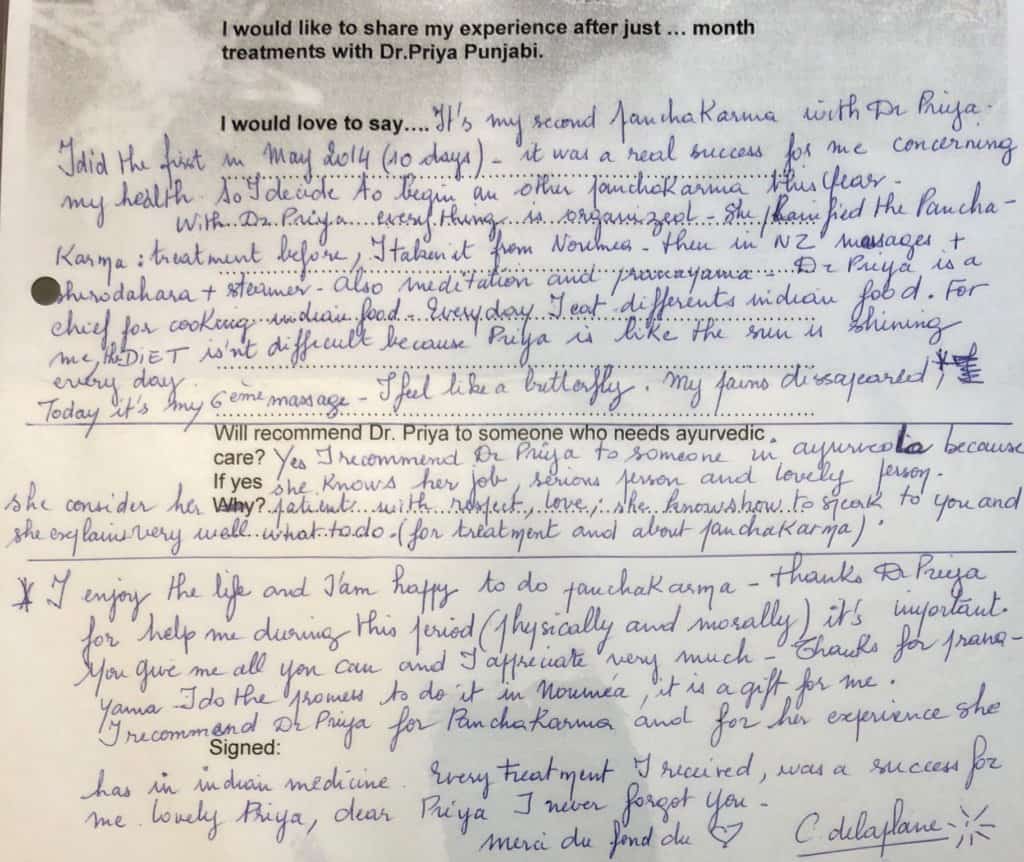 I would like to share my experience after just ... month
treatments with Dr.Priya Punjabi.
I would love to say.... It's my second panchaKarma with Dr Priya.
I did the first in May 2014 (10 days) - it was a real success for me concerning
my health. So I decide to begin an other panchaKarma this year.
With Dr Priya every thing is organized - She planified the Pancha-
Karma : treatment before, I taken it from Noumea - then in NZ massages +
shirodahara + steamer - Also meditation and pranayama - Dr Priya is a
chief for cooking indian food - Every day I eat differents indian food. For
me, the DIET is'nt difficult because Priya is like the sun is shining
every day.
Today it's my 6ème massage - I feel like a butterfly. My pains dissapeared, *
Will recommend Dr. Priya to someone who needs ayurvedic
care? Yes I recommend Dr Priya to someone in ayurveda because
If yes she knows her job, serious person and lovely person.
she consider her Why? patient with respect, love, she knows how to speak to you and
she explains very well what to do. (for treatment and about panchakarma).
* I enjoy the life and I'am happy to do panchaKarma - thanks Dr Priya
for help me during this period (physically and morally) it's important.
You give me all you can and I appreciate very much - Thanks for prana-
yama I do the promess to do it in Nouméa, it is a gift for me.
I recommend Dr Priya for PanchaKarma and for her experience she
Signed:
has in indian medicine. Every treatment I received, was a success for
me. lovely Priya, dear Priya I never forgot you -
merci du fond du ♡ C. delaplane